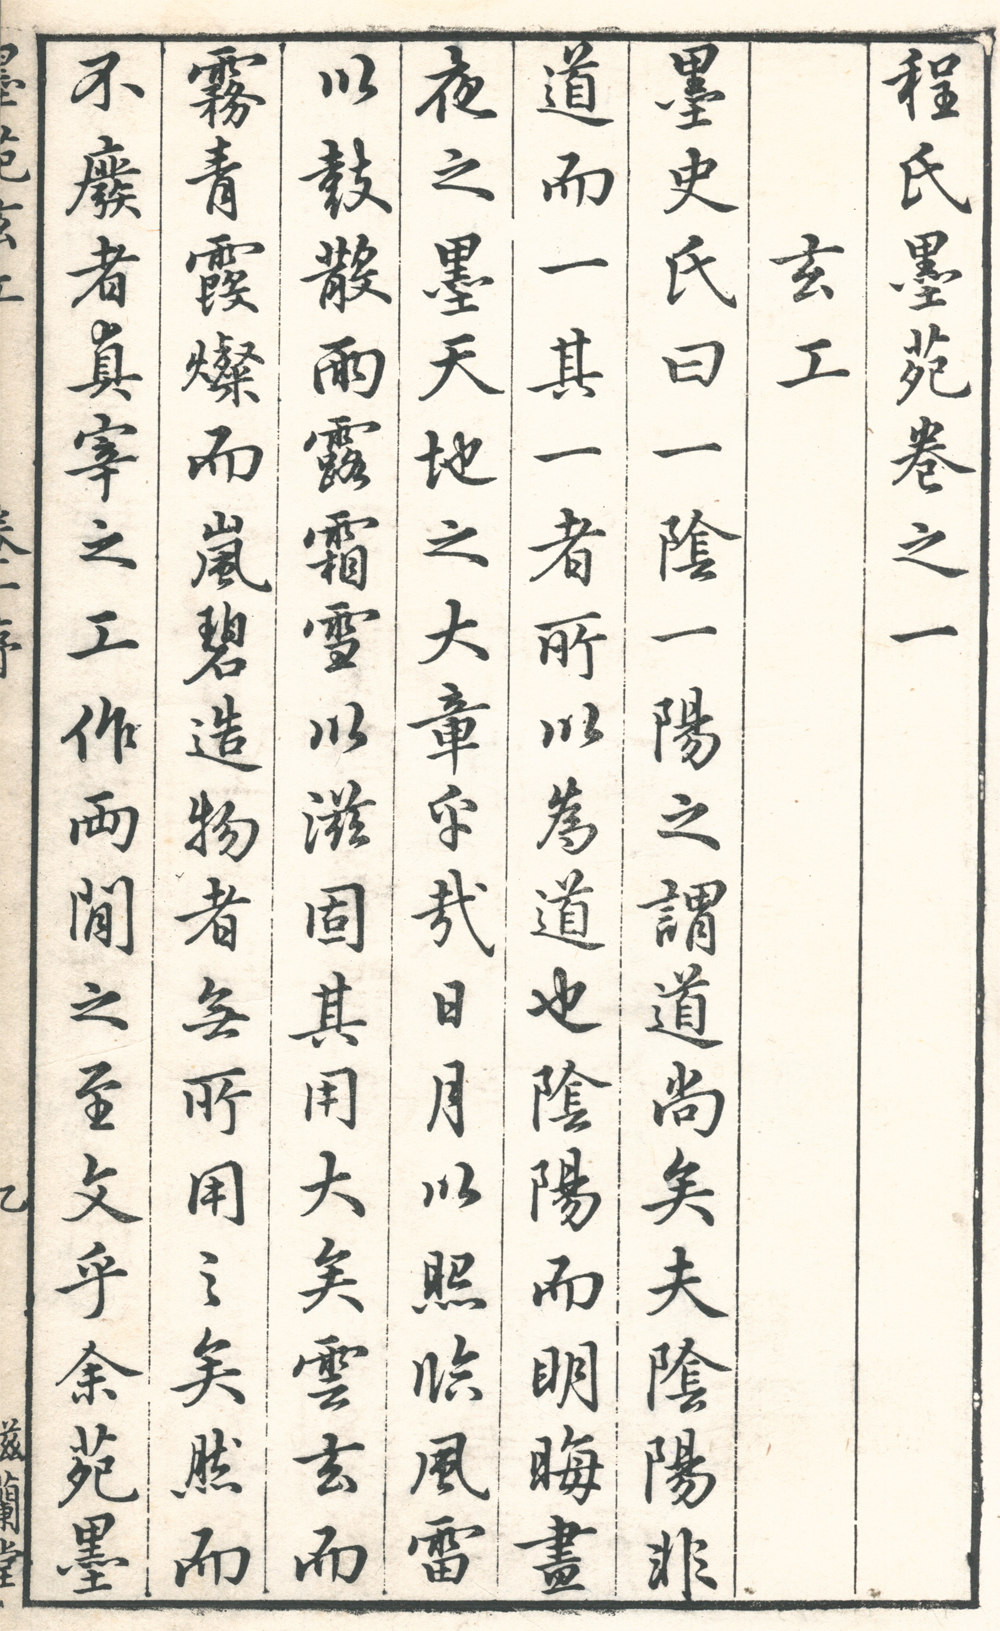 程氏墨苑卷之一
玄工
墨史氏曰一陰一陽之謂道尚矣夫陰陽非
道而一其一者所以為道也陰陽而明晦晝
夜之墨天地之大章乎哉日月以照臨風雷
以鼓散雨露霜雪以滋固其用大矣雲玄而
霧青霞燦而嵐碧造物者無所用之矣然而
不廢者真宰之工作兩間之至文乎余苑墨
墨苑玄工 卷一序 乙 滋蘭堂